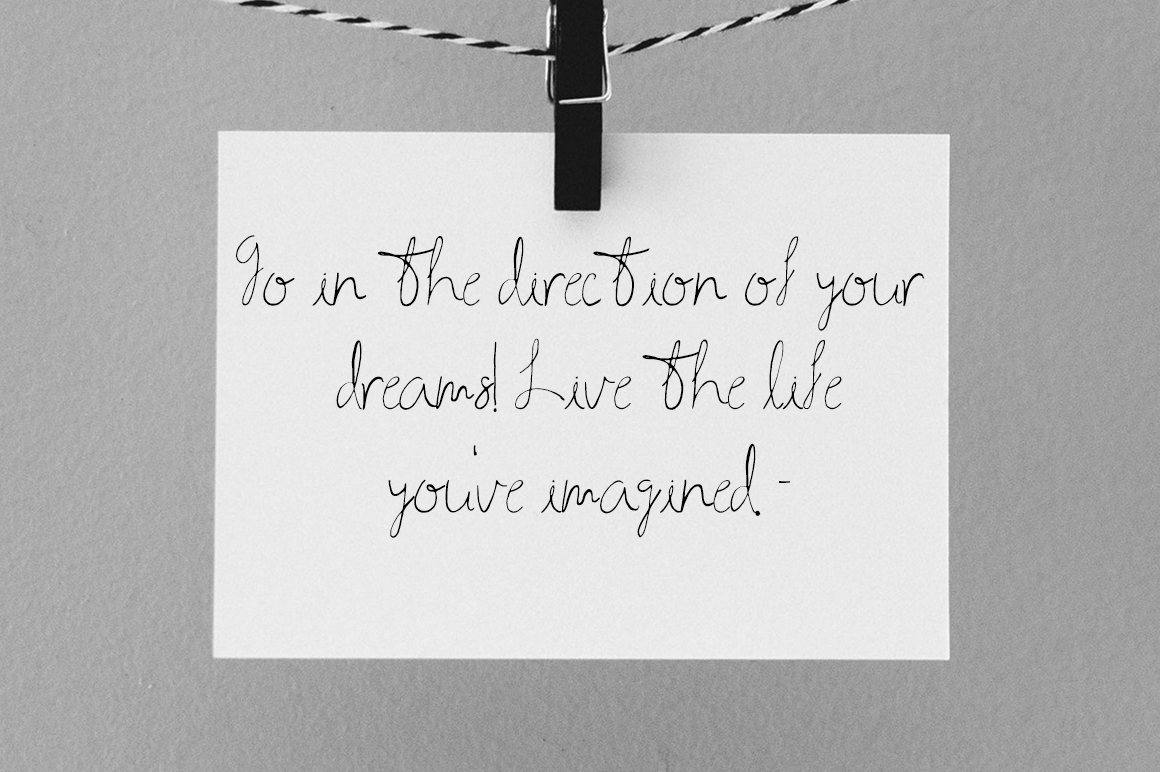 Go in the direction of your
dreams! Live the life
you've imagined. -